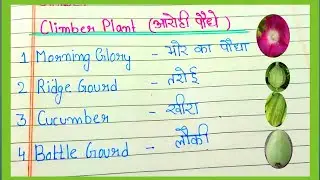 Climber Plant (आरोही पौधे)
1. Morning Glory - भोर का पौधा
2. Ridge Gourd - तरोई
3. Cucumber - खीरा
4. Battle Gourd - लौकी